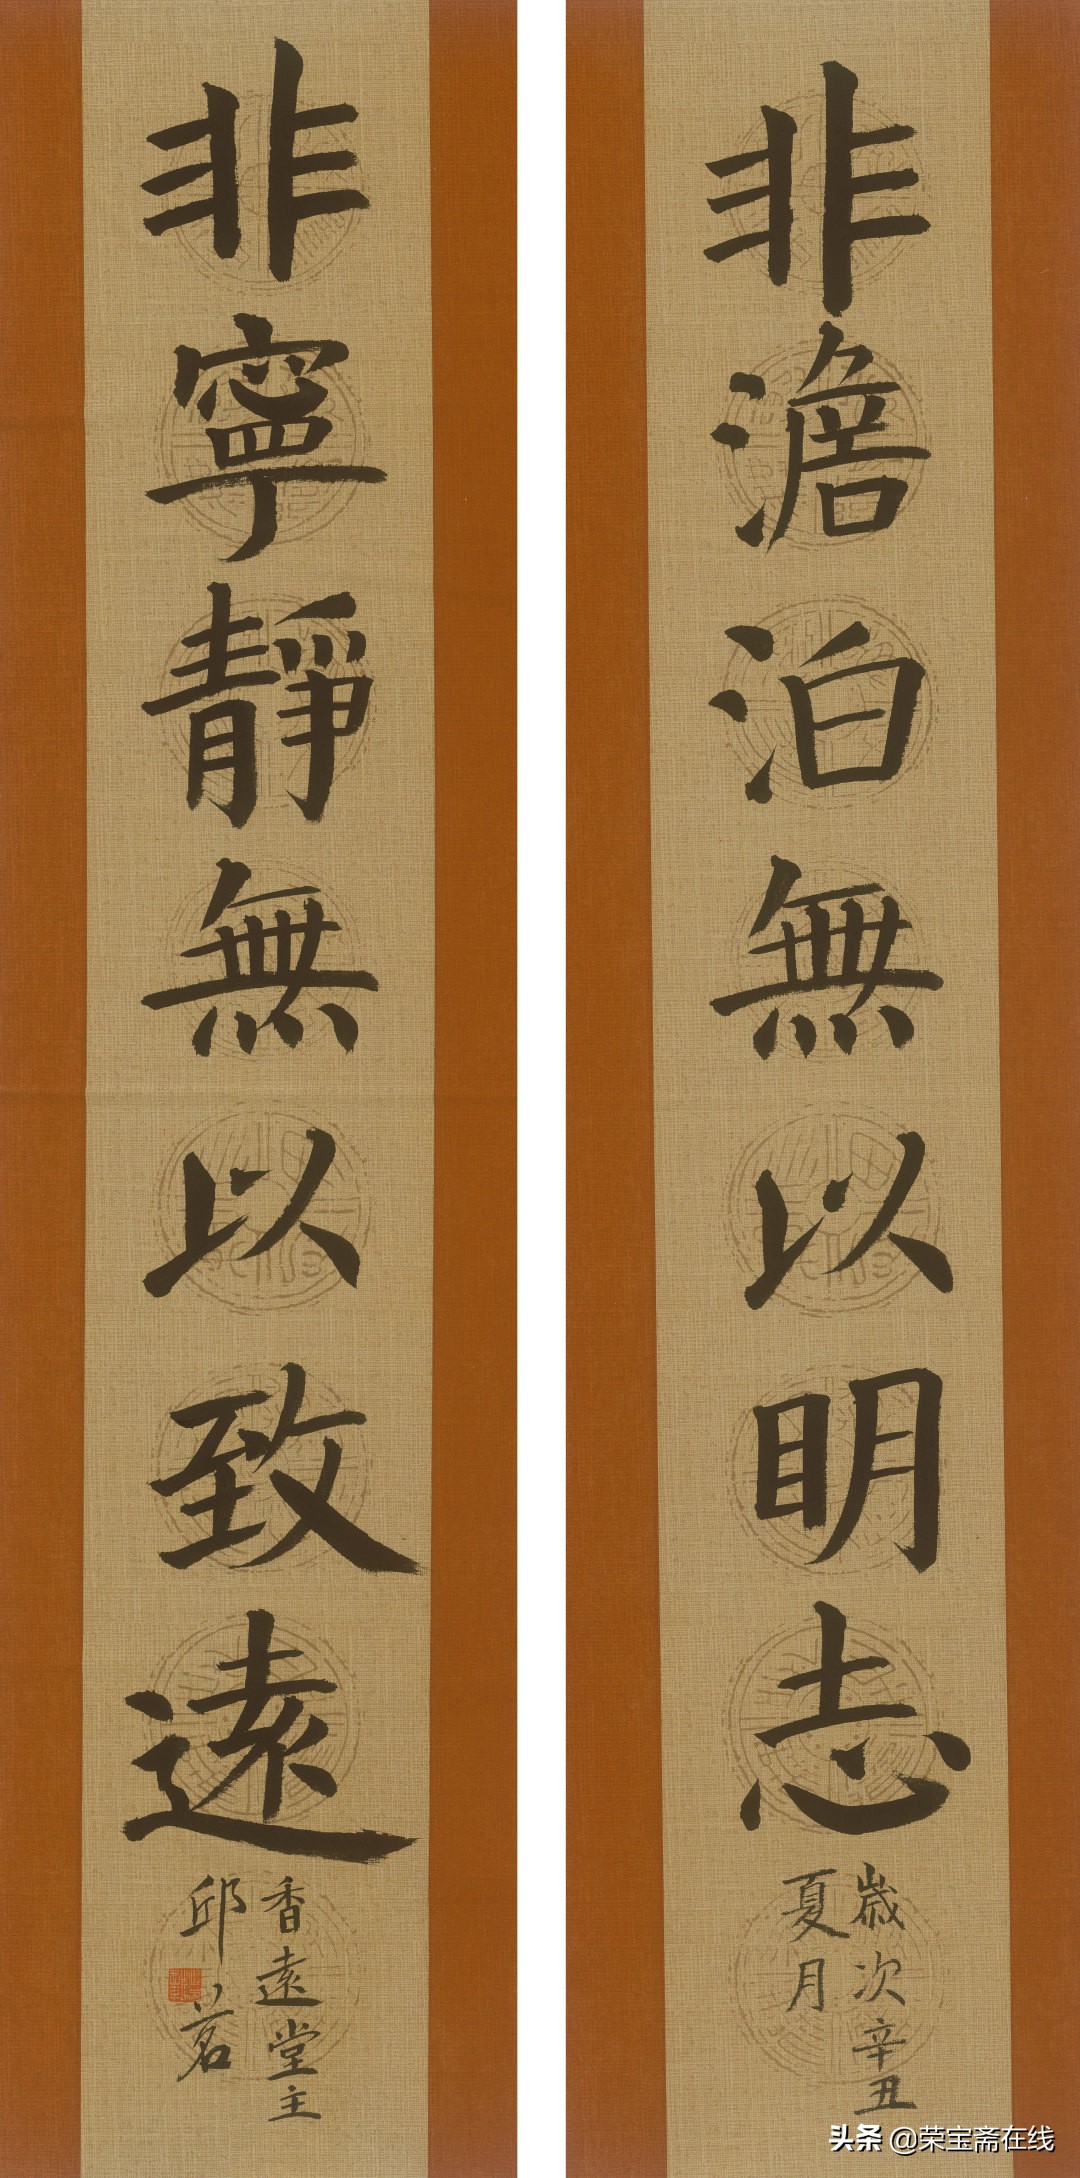 非澹泊無以明志
歲次辛丑
夏月
非寧靜無以致遠
香遠堂主
邱茗
头条 @荣宝斋在线